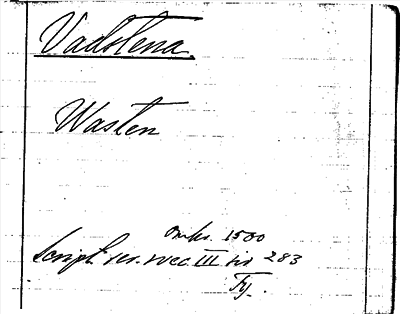 Vadstena
Wasten
omkr. 1500
Script. rer. svec. III sid 283